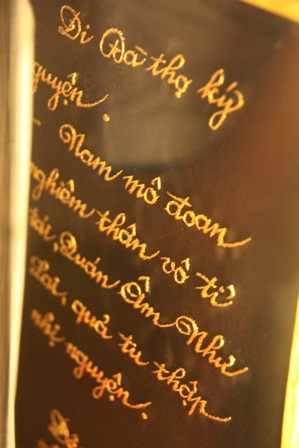 Di Đà thọ ký
nguyện.
_ Nam mô đoan
nghiêm thân vô tỉ
tái, Quán Âm Như
Lai, quả tu thập
nhị nguyện.